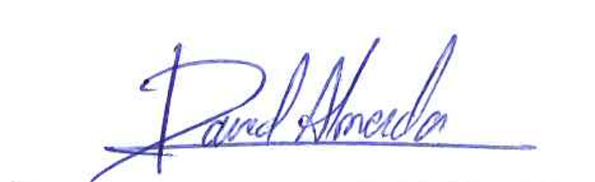 David Almeida